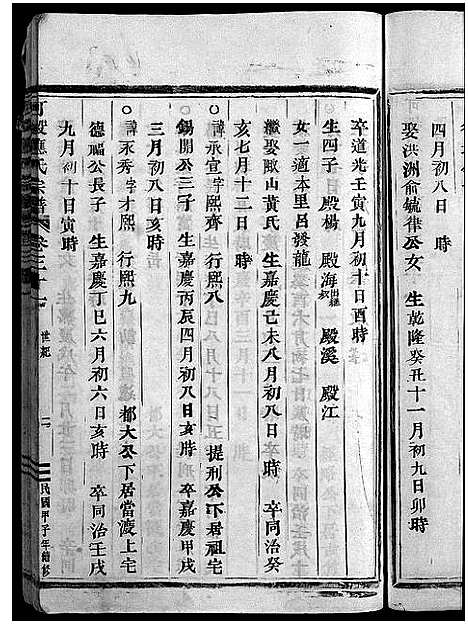 四月初八日　時
娶洪洲俞毓律公女　生乾隆癸丑十一月初九日卯時
卒道光壬寅九月初十日酉時
生四子　殿楊　殿海出繼　殿溪　殿江
女一適本里呂發龍
繼娶畈山黃氏　生嘉慶己未八月初八日　時　卒同治癸
亥七月十二日　時
○諱永宣字熙齊　行熙八　提刑公下居祖宅
錫開公三子　生嘉慶丙辰四月初八日亥時　卒嘉慶甲戌
三月初八日亥時
○諱永秀字才熙　行熙九　都大公下居當渡上宅
德福公長子　生嘉慶丁巳六月初六日亥時　卒同治壬戌
九月初十日寅時
可投應氏宗譜　卷之三十七　世紀　二　民國甲子年續修